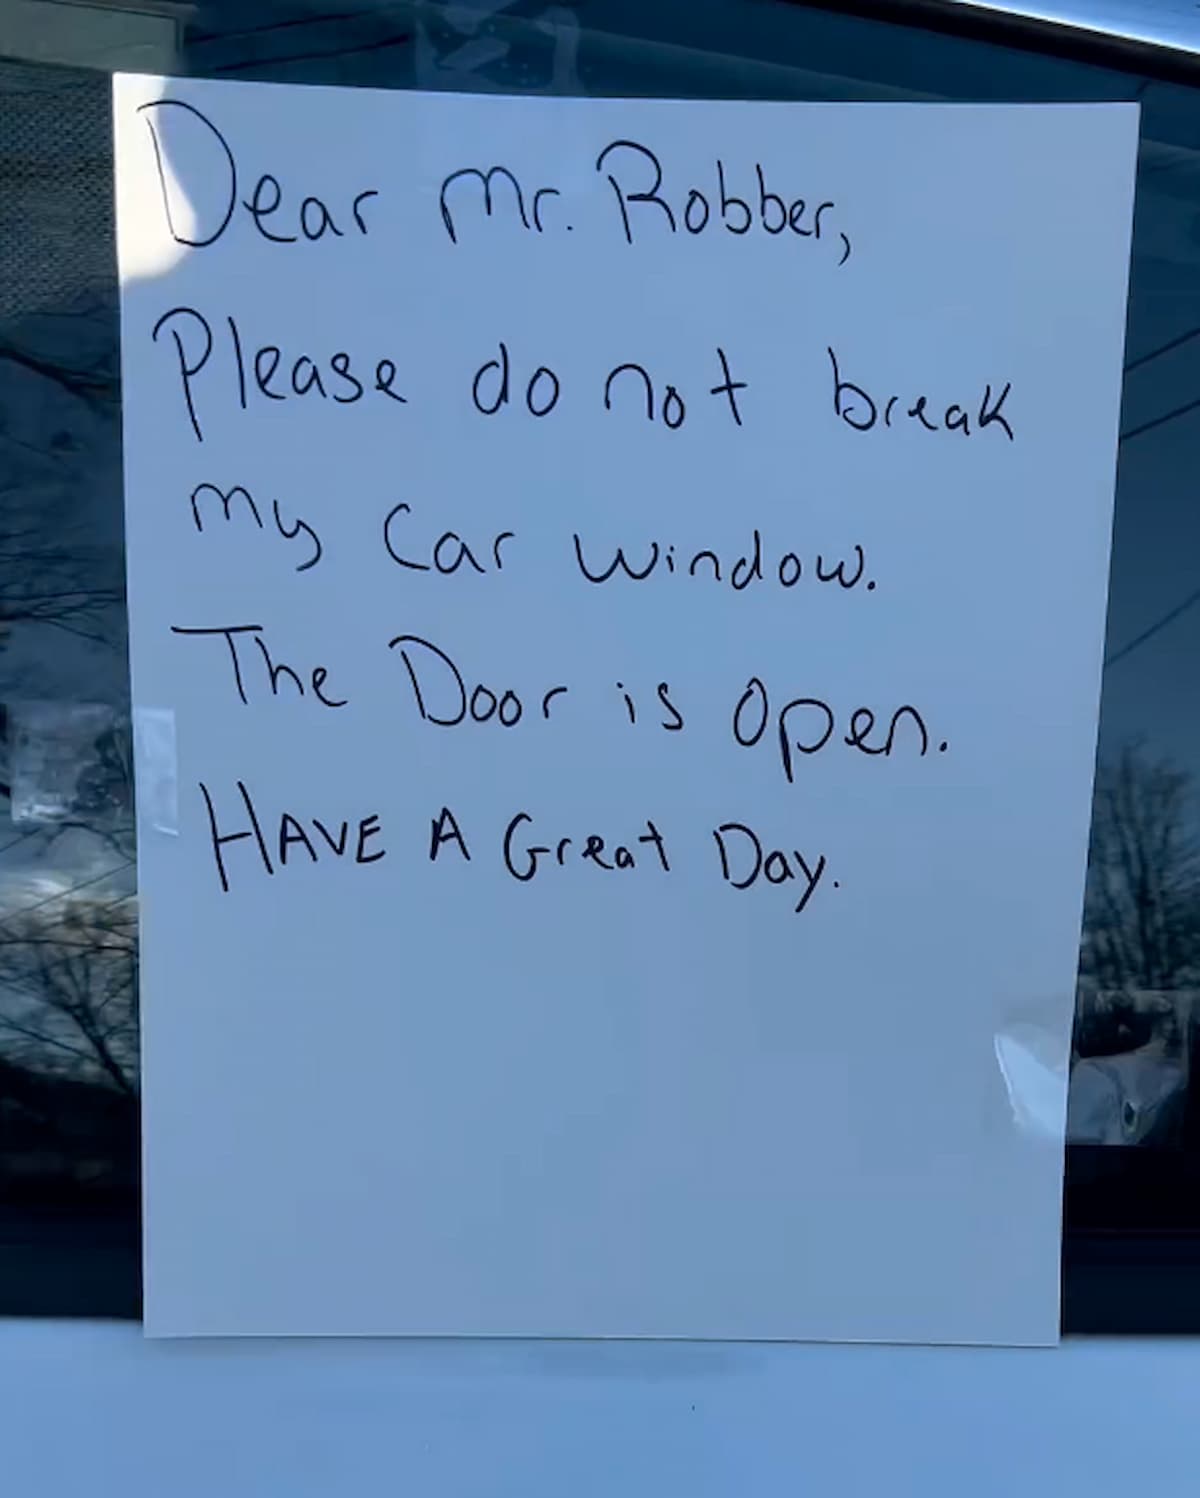 Dear Mr. Robber,
Please do not break
my Car window.
The Door is Open.
HAVE A Great Day.